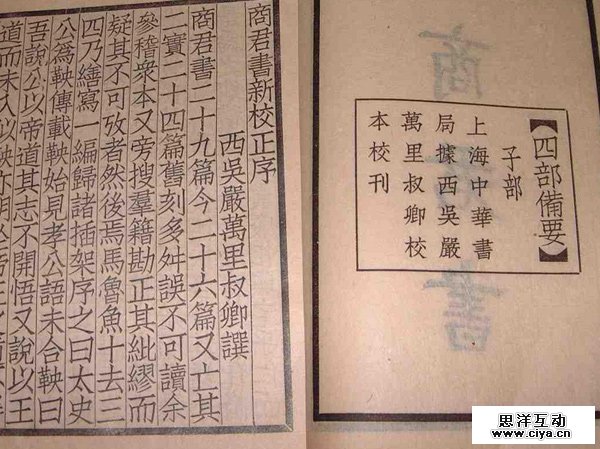 【四部備要】
子部
上海中華書
局據西吳嚴
萬里叔卿校
本校刊
商 書
商君書新校正序
西吳嚴萬里叔卿譔
商君書二十九篇今二十六篇又亡其
二實二十四篇舊刻多舛誤不可讀余
參稽衆本又旁搜羣籍勘正其紕繆而
疑其不可攷者然後焉馬魯魚十去三
四乃繕寫一編歸諸插架序之曰太史
公爲鞅傳載鞅始見孝公語未合鞅曰
吾說公以帝道其志不開悟又說以王
道而未入
思洋互动
www.ciya.cn